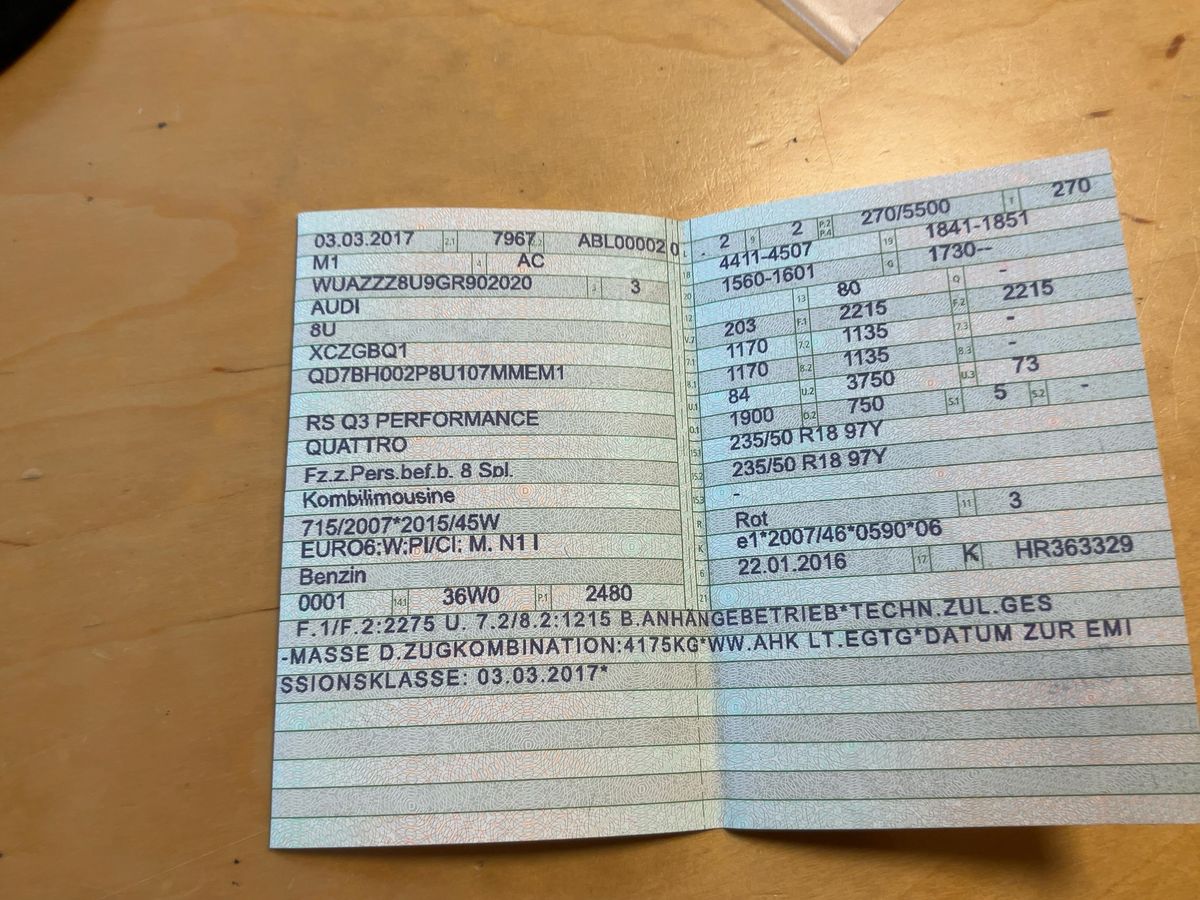 03.03.2017 2.1 7967 ABL00002 0
M1 4 AC
WUAZZZ8U9GR902020 3 3
AUDI
8U
XCZGBQ1
QD7BH002P8U107MMEM1
RS Q3 PERFORMANCE
QUATTRO
Fz.z.Pers.bef.b. 8 Spl.
Kombilimousine
715/2007*2015/45W
EURO6;W;PI/CI; M, N1 I
Benzin
0001 14.1 36W0 P.1 2480
L 2 9 2 P.2 P.4 270/5500 T 270
18 4411-4507 19 1841-1851
20 1560-1601 G 1730--
12 - 13 80 Q -
V.7 203 F.1 2215 F.2 2215
7.1 1170 7.2 1135 7.3 -
8.1 1170 8.2 1135 8.3 -
U.1 84 U.2 3750 U.3 73
O.1 1900 O.2 750 S.1 5 S.2 -
15.1 235/50 R18 97Y
15.2 235/50 R18 97Y
15.3 -
R Rot 11 3
K e1*2007/46*0590*06
6 22.01.2016 17 K HR363329
21
F.1/F.2:2275 U. 7.2/8.2:1215 B.ANHÄNGEBETRIEB*TECHN.ZUL.GES
-MASSE D.ZUGKOMBINATION:4175KG*WW.AHK LT.EGTG*DATUM ZUR EMI
SSIONSKLASSE: 03.03.2017*